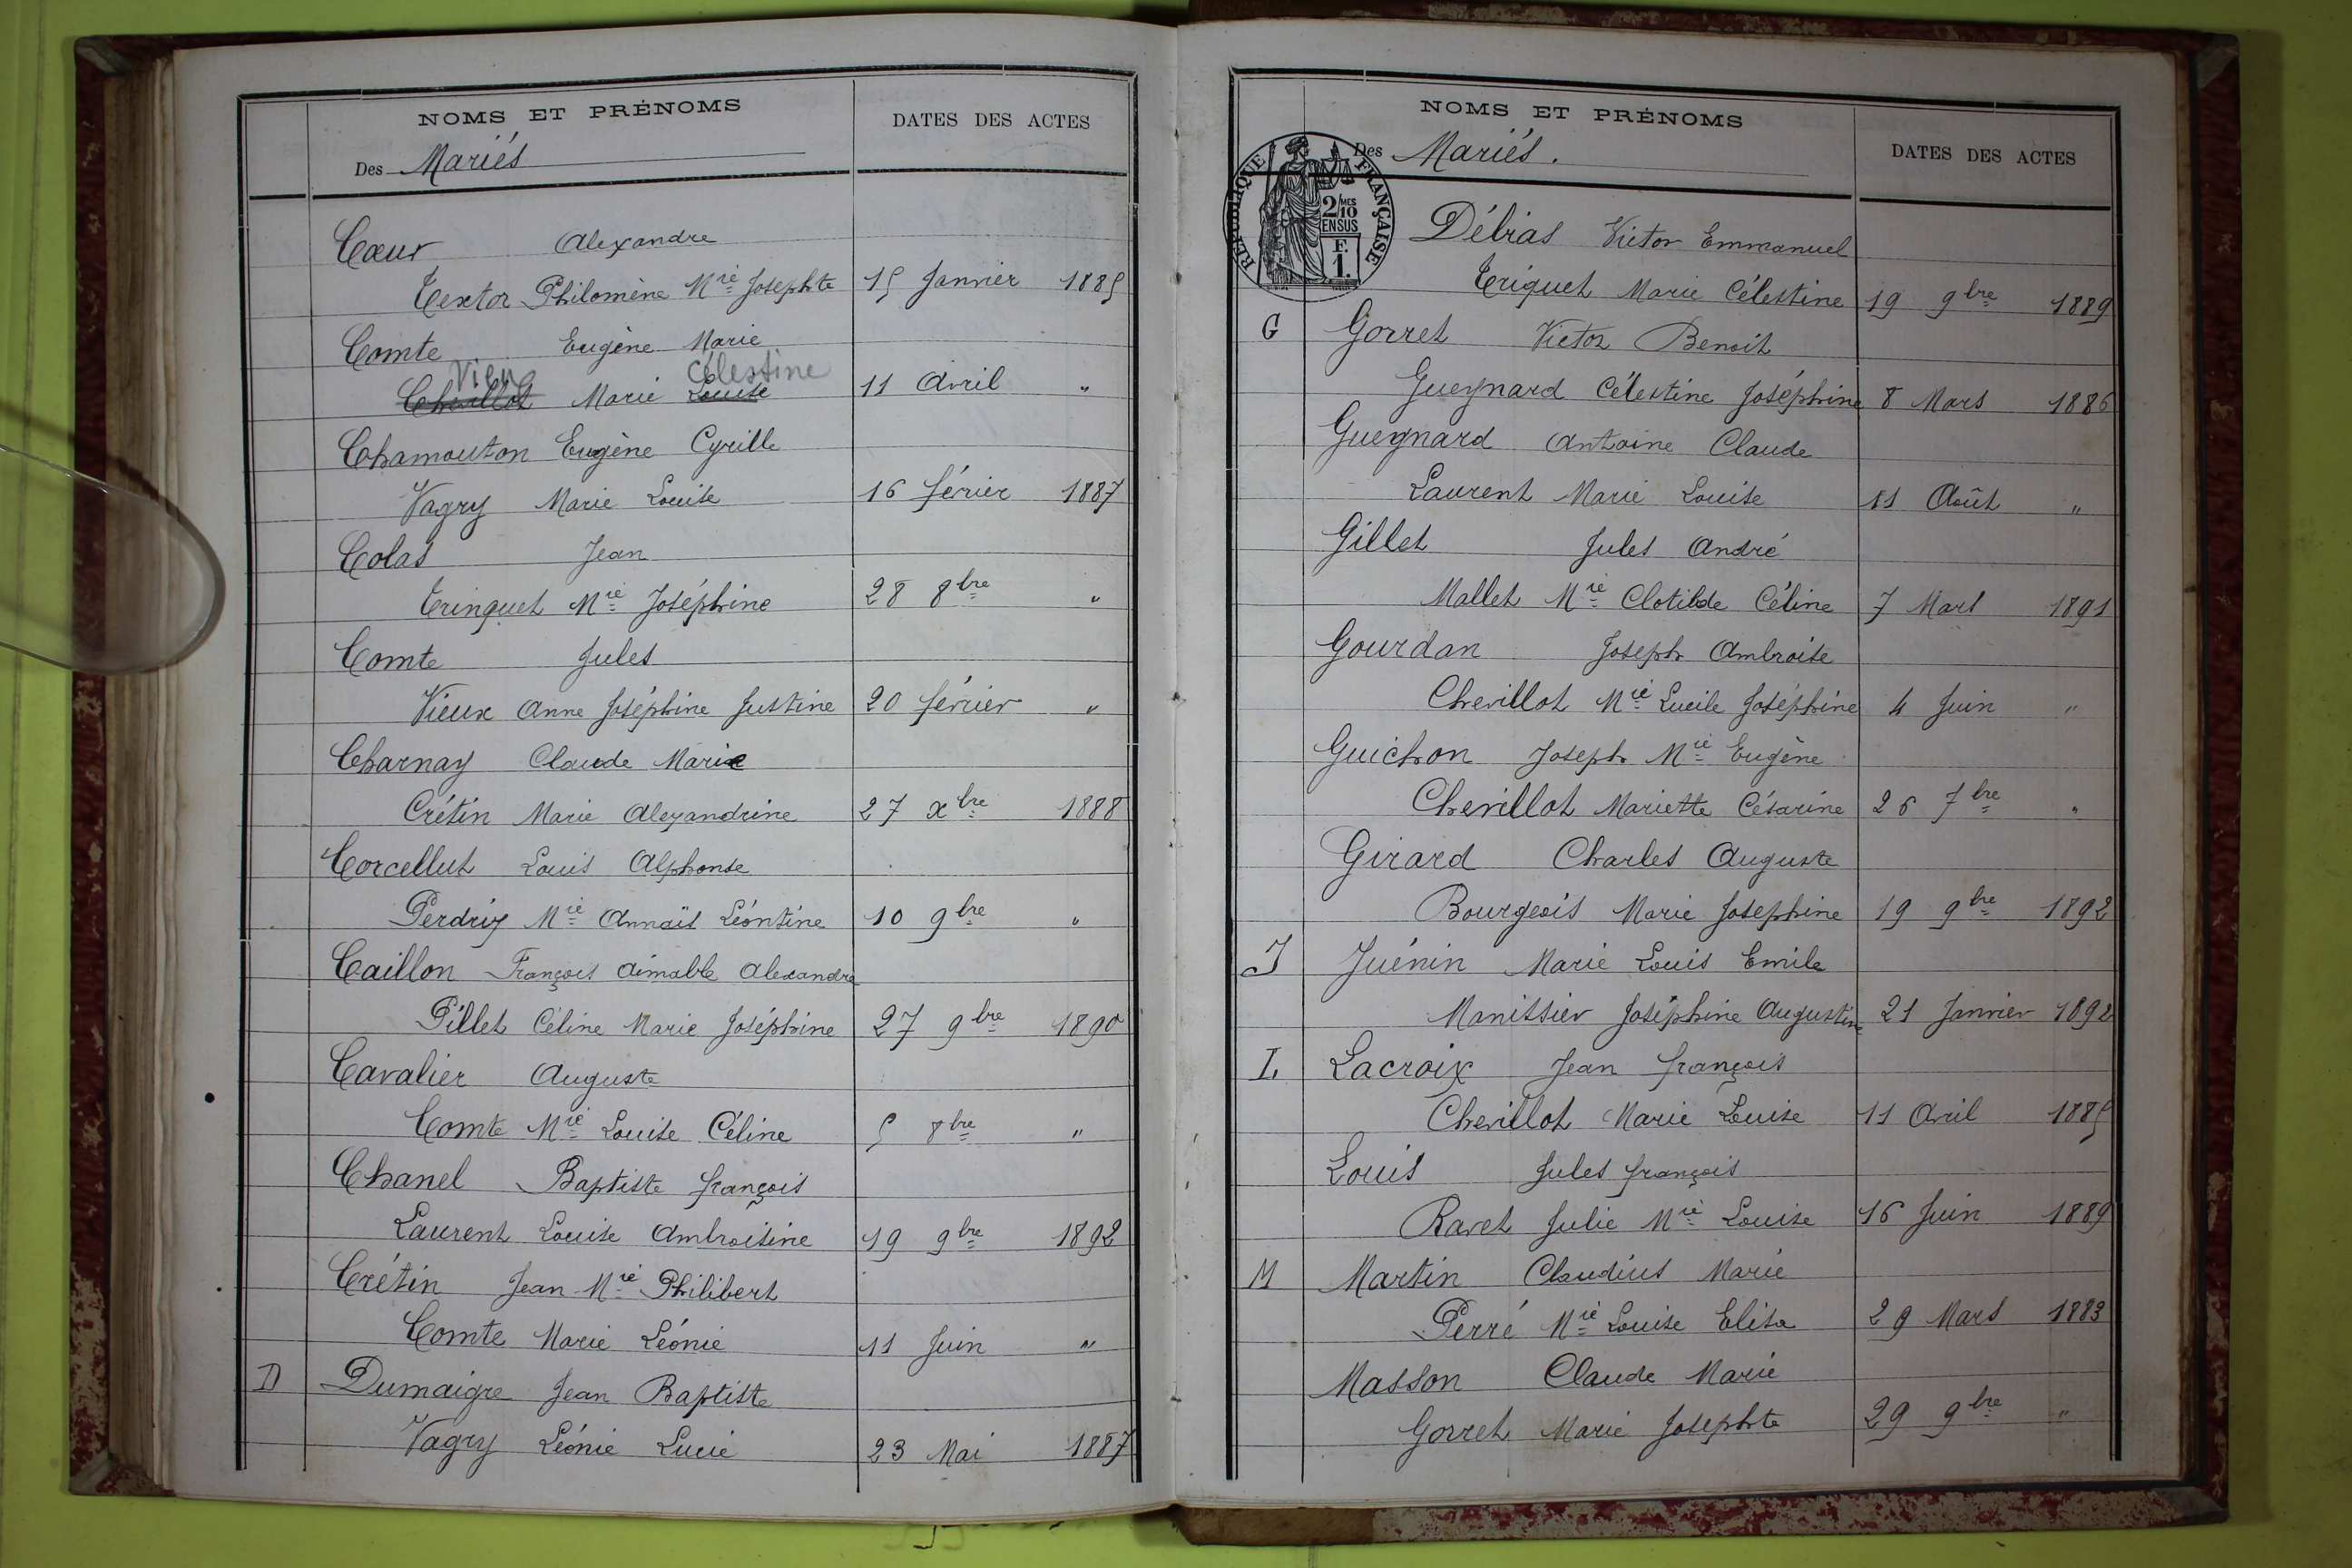 NOMS ET PRÉNOMS
DATES DES ACTES
Des Mariés
Cœur Alexandre
Textor Philomène Mrie Josephte 15 Janvier 1885
Comte Eugène Marie
Vieux Célestine
Chevillot Marie Louise 11 Avril "
Chamouton Eugène Cyrille
Vagry Marie Louise 16 férier 1887
Colas Jean
Trinquet Mrie Joséphine 28 8bre "
Comte Jules
Vieux Anne Joséphine Justine 20 férier "
Charnay Claude Marie
Crétin Marie Alexandrine 27 xbre 1888
Corcellut Louis Alphonse
Perdrix Mrie Annaïs Léontine 10 9bre "
Caillon François Aimable Alexandre
Pillet Céline Marie Joséphine 27 9bre 1890
Cavalier Auguste
Comte Mrie Louise Céline 5 8bre "
Chanel Baptiste françois
Laurent Louise Ambroisine 19 9bre 1892
Crétin Jean Mrie Philibert
Comte Marie Léonie 11 Juin "
D Dumaigre Jean Baptiste
Vagry Léonie Lucie 23 Mai 1887
NOMS ET PRÉNOMS
DATES DES ACTES
Des Mariés.
RÉPUBLIQUE FRANÇAISE
2MES/10
EN SUS
F.
1.
Débias Victor Emmanuel
Triquet Marie Célestine 19 9bre 1889
G Gorret Victor Benoit
Gueynard Célestine Joséphine 8 Mars 1886
Gueynard Antoine Claude
Laurent Marie Louise 11 Août "
Gillet Jules André
Mallet Mrie Clotilde Céline 7 Mars 1891
Gourdan Joseph Ambroise
Chevillot Mrie Lucile Joséphine 4 Juin "
Guichon Joseph Mrie Eugène
Chevillot Mariette Césarine 26 7bre "
Girard Charles Auguste
Bourgeois Marie Josephine 19 9bre 1892
J Juénin Marie Louis Emile
Manissier Joséphine Augustine 21 Janvier 1892
L Lacroix Jean françois
Chevillot Marie Louise 11 Avril 1885
Louis Jules françois
Ravet Julie Mrie Louise 16 Juin 1889
M Martin Claudius Marie
Perré Mrie Louise Elisa 29 Mars 1883
Masson Claude Marie
Gorret Marie Josephte 29 9bre "